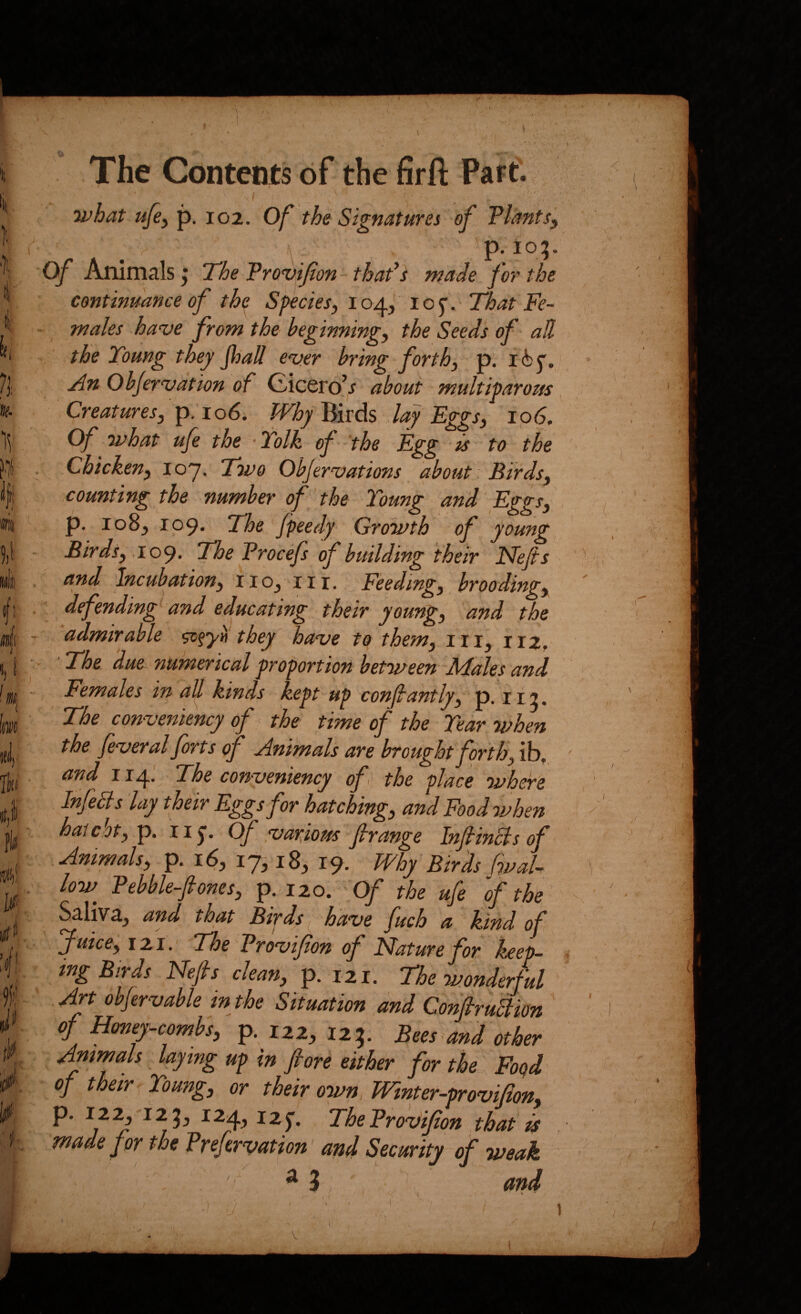 The Contents of the firſt Part.
what uſe, p. 102. Of the Signatures of Plants,
p. 103.
Of Animals; The Proviſion that's made for the
continuance of the Species, 104, 105. That Fe-
males have from the beginning, the Seeds of all
the Young they ſhall ever bring forth, p. 165.
An Obſervation of Cicero's about multiparous
Creatures, p. 106. Why Birds lay Eggs, 106.
Of what uſe the Yolk of the Egg is to the
Chicken, 107. Two Obſervations about Birds,
counting the number of the Young and Eggs,
p. 108, 109. The ſpeedy Growth of young
Birds, 109. The Proceſs of building their Neſts
and Incubation, 110, 111. Feeding, brooding,
defending and educating their young, and the
admirable ςοργὴ they have to them, 111, 112.
The due numerical proportion between Males and
Females in all kinds kept up conſtantly, p. 113.
The conveniency of the time of the Year when
the ſeveral ſorts of Animals are brought forth, ib.
and 114. The conveniency of the place where
Inſects lay their Eggs for hatching, and Food when
hatcht, p. 115. Of various ſtrange Inſtincts of
Animals, p. 16, 17, 18, 19. Why Birds ſwal-
low Pebble-ſtones, p. 120. Of the uſe of the
Saliva, and that Birds have ſuch a kind of
Juice, 121. The Proviſion of Nature for keep-
ing Birds Neſts clean, p. 121. The wonderful
Art obſervable in the Situation and Conſtruction
of Honey-combs, p. 122, 123. Bees and other
Animals laying up in ſtore either for the Food
of their Young, or their own Winter-proviſion,
p. 122, 123, 124, 125. The Proviſion that is
made for the Preſervation and Security of weak
a 3 and